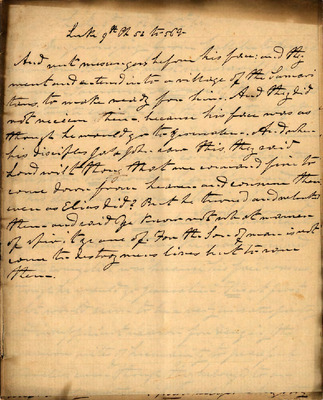 Luke 9th Ch 52 to 56
And sent messengers before his face: and they
went and entered into a village of the Samari
tans, to make ready for him. And they did
not receive him because his face was as
though he would go to Jerusalem. And when
his disciples James & John saw this, they said
Lord wilt thou that we command fire to
come down from heaven and consume them
even as Elias did? But he turned and rebuked
them and said Ye know not what manner
of spirit ye are of. For the Son of man is not
come to destroy mens lives but to save
them